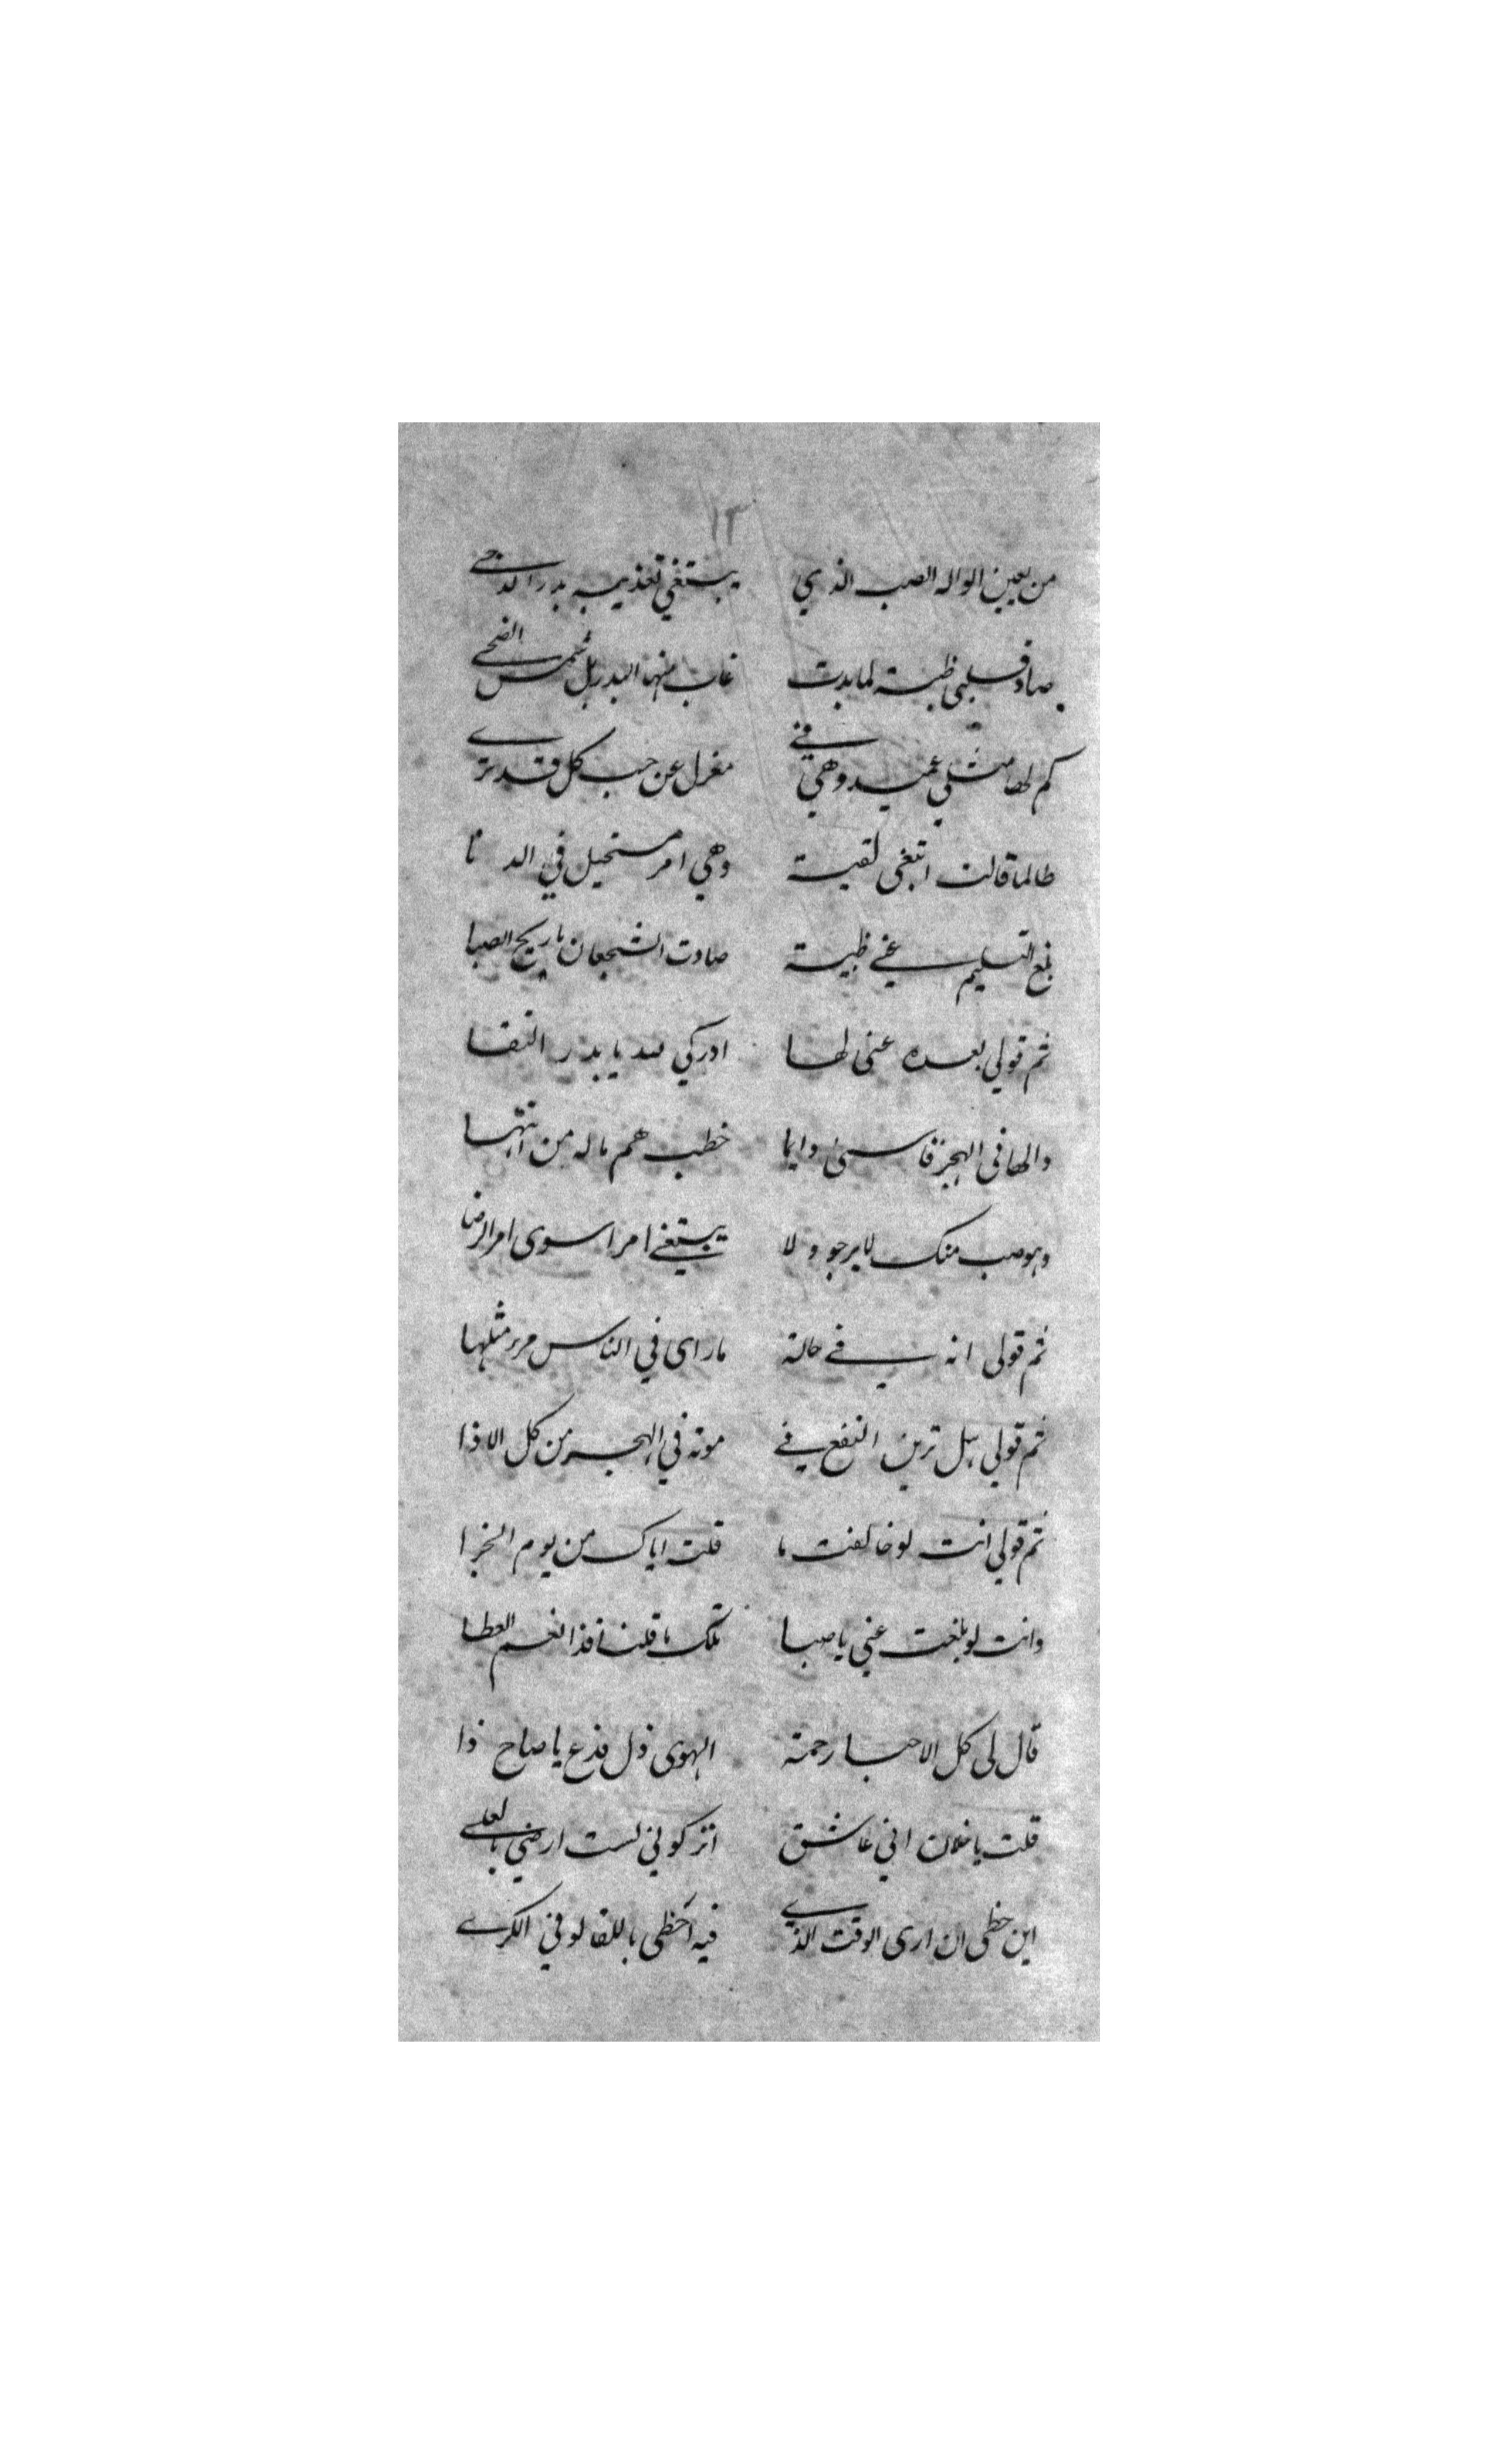 ١٣
من يعين الواله الصب الذي يبتغي تعذيبه بدر الدجى
صاد قلبي ظبية لما بدت غاب منها البدر بل شمس الضحى
كم لها مثلي عميد وهي في معزل عن حب كل قد ترى
طالما قالت ابتغى لقية وهي امر مستحيل في الدنا
بلغ التسليم عني ظبية صادت الشجعان يا ريح الصبا
ثم قولي بعده عنى لها ادركي يا بدر النقا
والها في الهجر قاسى دايما خطب هم ماله من انتها
وهو صب منك لا يرجو ولا يبتغي امرا سوى امر الرضا
ثم قولى انه في حالة ماراى في الناس مرء مثلها
ثم قولي هل ترين النفع في موته في الهجر من كل الاذا
ثم قولي انت لو خالفت ما قلت اياك من يوم الجزا
وانت لو بلغت عني يا صبا تلك ما قلنا فذا نعم العطا
قال لى كل الاحبا رحمة الهوى ذل فدع يا صاح ذا
قلت يا خلان اني عاشق اتركوني لست ارضي بالعلى
اين حظى ان ارى الوقت الذي فيه احظى باللقا لو في الكرى